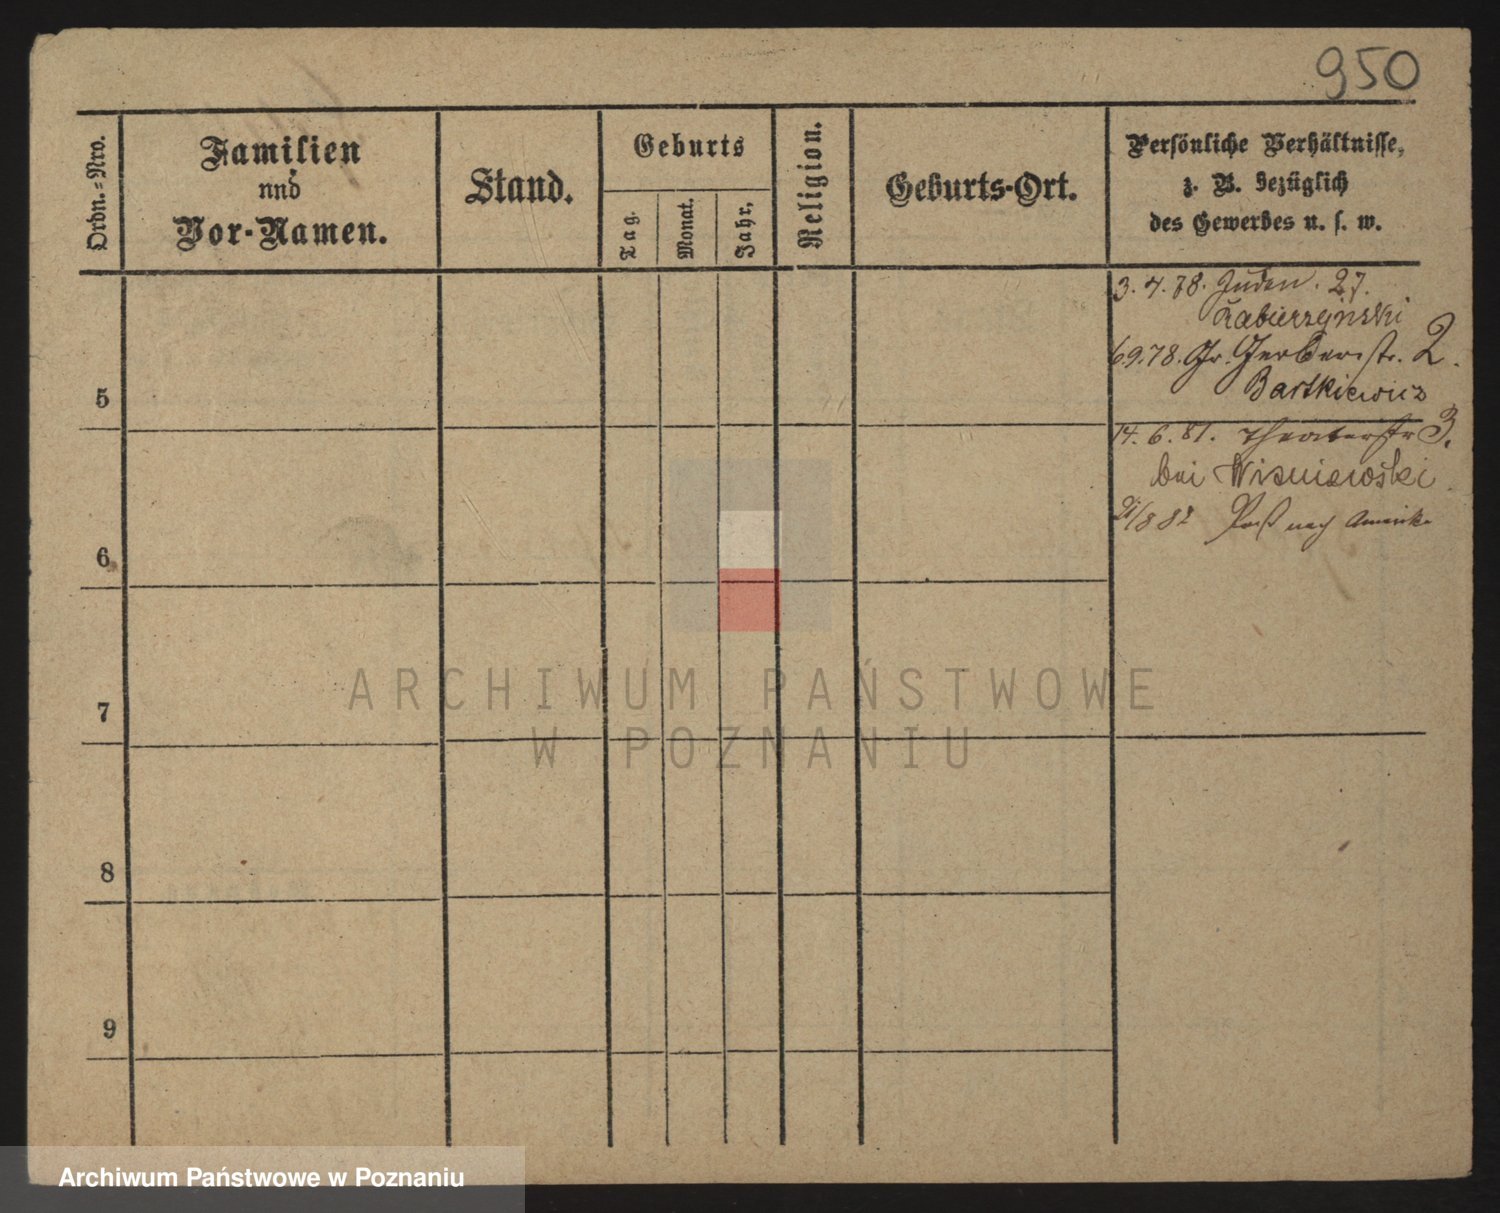 950
Ordn.=Nro.
Familien
nnd
Vor-Namen.
Stand.
Geburts
Tag.
Monat.
Jahr,
Religion.
Geburts-Ort.
Persönliche Verhältnisse,
z. B. bezüglich
des Gewerbes u. s. w.
3. 4. 78. Juden. 27.
Zabierzynski
6 9. 78. Gr. Gerberstr. 2.
5
Bartkiewicz
14. 6. 81. Theaterstr 3.
bei Wisniewski
/8 82 Paß nach Amerika
6
ARCHIWUM PAŃSTWOWE
7
W POZNANIU
8
9
Archiwum Państwowe w Poznaniu